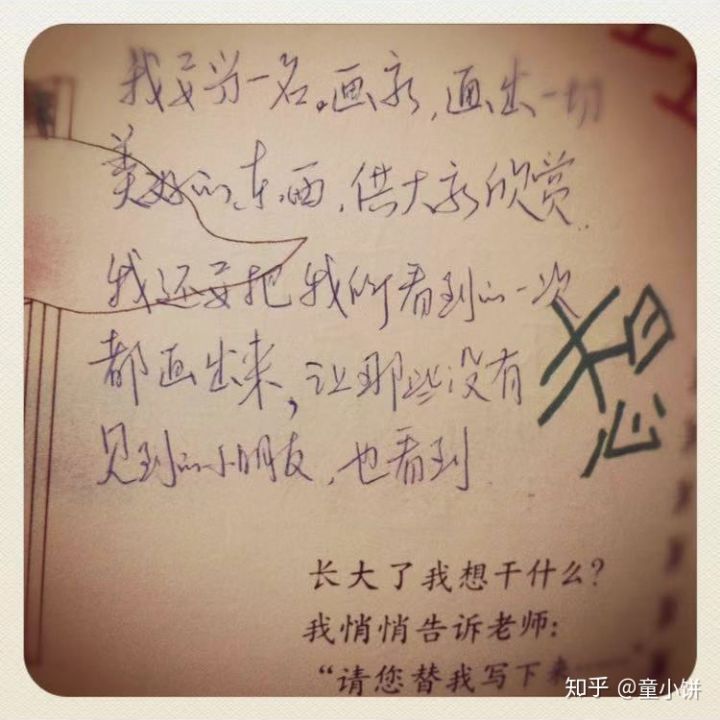 我要当一名。画家，画出一切
美好的东西，供大家欣赏.
我还要把我所看到的一次
都画出来，让那些没有
见到的小朋友，也看到
长大了我想干什么？
我悄悄告诉老师：
“请您替我写下来……”
知乎 @童小饼